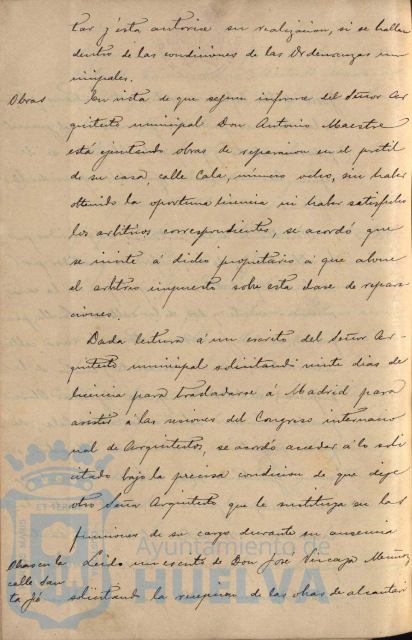 tar y ésta autorice su realizacion, si se hallan
dentro de las condiciones de las Ordenanzas mu
nicipales.
Obras En vista de que segun informe del Señor Ar
quitecto municipal Don Antonio Maestre
está ejecutando obras de reparacion en el pretil
de su casa, calle Cala, número ocho, sin haber
obtenido la oportuna licencia ni haber satisfecho
los arbitrios correspondientes, se acordó que
se invite á dicho propietario á que abone
el arbitrio impuesto sobre esta clase de repara
ciones.
Dada lectura á un escrito del Señor Ar-
quitecto municipal solicitando veinte dias de
licencia para trasladarse á Madrid para
asistir á las sesiones del Congreso internacio
nal de Arquitectos, se acordó acceder á lo soli
citado bajo la precisa condicion de que deje
otro Señor Arquitecto que le sustituya en las
funciones de su cargo durante su ausencia
Obras en la calle San ta Fé
Leido un escrito de Don José Vizcaya Muñoz
solicitando la recepcion de las obras de alcantari
Ayuntamiento de
HUELVA